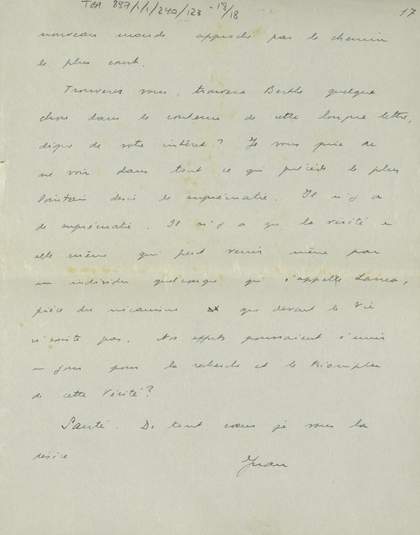 TGA 897/1/1/240/123 - 18/18
17
nouveau monde approche par le chemin
le plus court.
Trouverez vous, travers Berthe quelque
chose dans le contenu de cette longue lettre,
digne de votre intérêt? Je vous prie de
ne voir dans tout ce qui précède le plus
lointain désir de suprématie. Il n'y a
de suprématie. Il n'y a que la vérité
elle même qui peut venir même par
un individu quelconque qui s'appelle
pièce des mécanismes que devant la Vie
n'existe pas. Nos efforts pourraient s'unir
un jour pour la recherche et le triomphe
de cette Vérité?
Santé. De tout coeur je vous la
désire
Juan